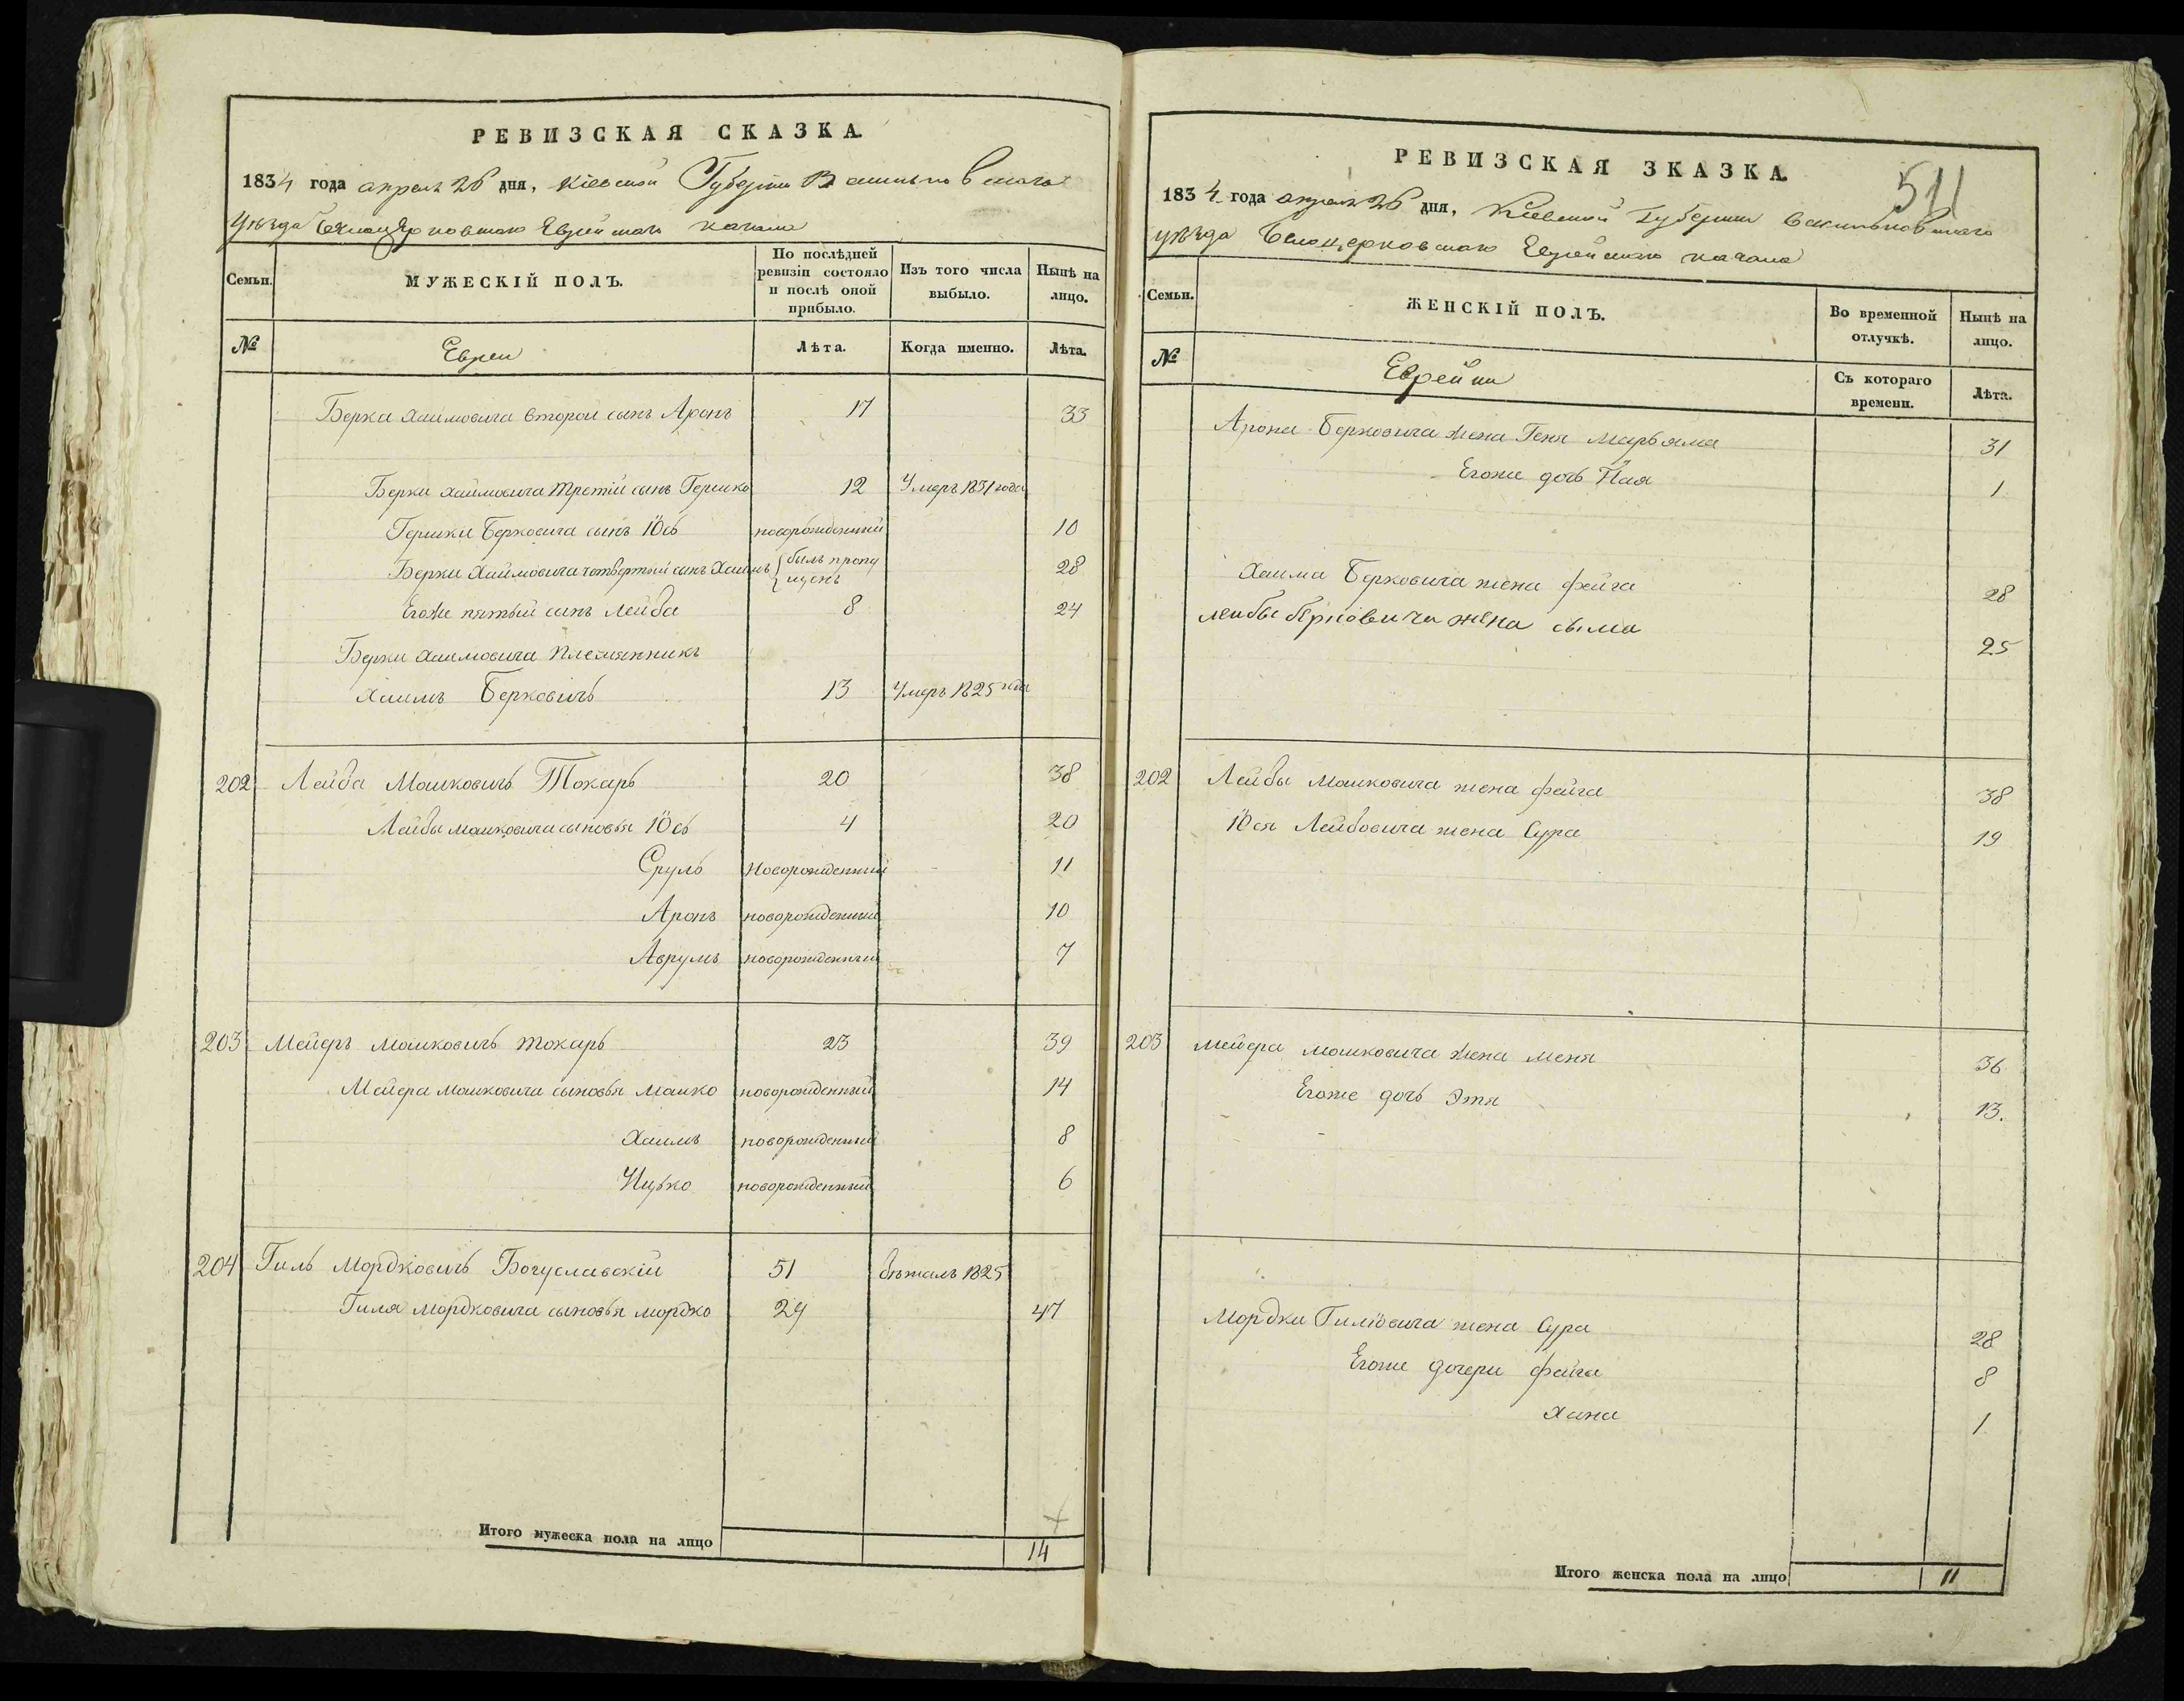 РЕВИЗСКАЯ СКАЗКА.
1834 года апреля 26 дня, Кіевской Губерніи Васильковскаго
Уѣзда Белоцерковскаго Еврейскаго кагала
Семьи.
МУЖЕСКІЙ ПОЛЪ.
По послѣдней ревизіи состояло и послѣ оной прибыло.
Изъ того числа выбыло.
Нынѣ на лицо.
№
Евреи
Лѣта.
Когда именно.
Лѣта.
Берка Хаимовича второи сынъ Аронъ 17 33
Берки Хаймовича третій сынъ Гершко 12 Умеръ 1831 года
Гершки Берковича сынъ Іось новорожденный 10
Берки Хаймовича четвертый сынъ Хаимъ былъ пропу
щенъ 28
Егоже пятый сынъ Лейба 8 24
Берки Хаимовича племянникъ
Хаимъ Берковичъ 13 Умеръ 1825 года
202 Лейба Мошковичъ Токарь 20 38
Лейбы Мошковича сыновья Іось 4 20
Сруль Новорожденный 11
Аронъ новорожденный 10
Аврумъ новорожденный 7
203 Мейеръ Мошковичъ Токарь 23 39
Мейера Мошковича сыновья Мошко новорожденный 14
Хаимъ новорожденный 8
Ицько новорожденный 6
204 Гиль Мордковичъ Богуславскій 51 бѣжалъ 1825
Гиля Мордковича сыновья Мордко 29 47
Итого мужеска пола на лицо 14
511
РЕВИЗСКАЯ ЗКАЗКА.
1834 года апреля 26 дня, Кіевской Губерніи Васильковскаго
уѣзда Белоцерковскаго Еврейскаго кагала
Семьи.
ЖЕНСКІЙ ПОЛЪ.
Во временной отлучкѣ.
Нынѣ на лицо.
№
Еврейки
Съ котораго времени.
Лѣта.
Арона Берковича жена Геня Марьяма 31
Егоже дочь Пая 1
Хаима Берковича жена Фейга 28
Лейбы Берковича жена Сима 25
202 Лейбы Мошковича жена Фейга 38
Іося Лейбовича жена Сура 19
203 Мейера Мошковича жена Меня 36
Егоже дочь Этя 13.
Мордки Гиліовича жена Сура 28
Егоже дочери Фейга 8
Хана 1
Итого женска пола на лицо 11